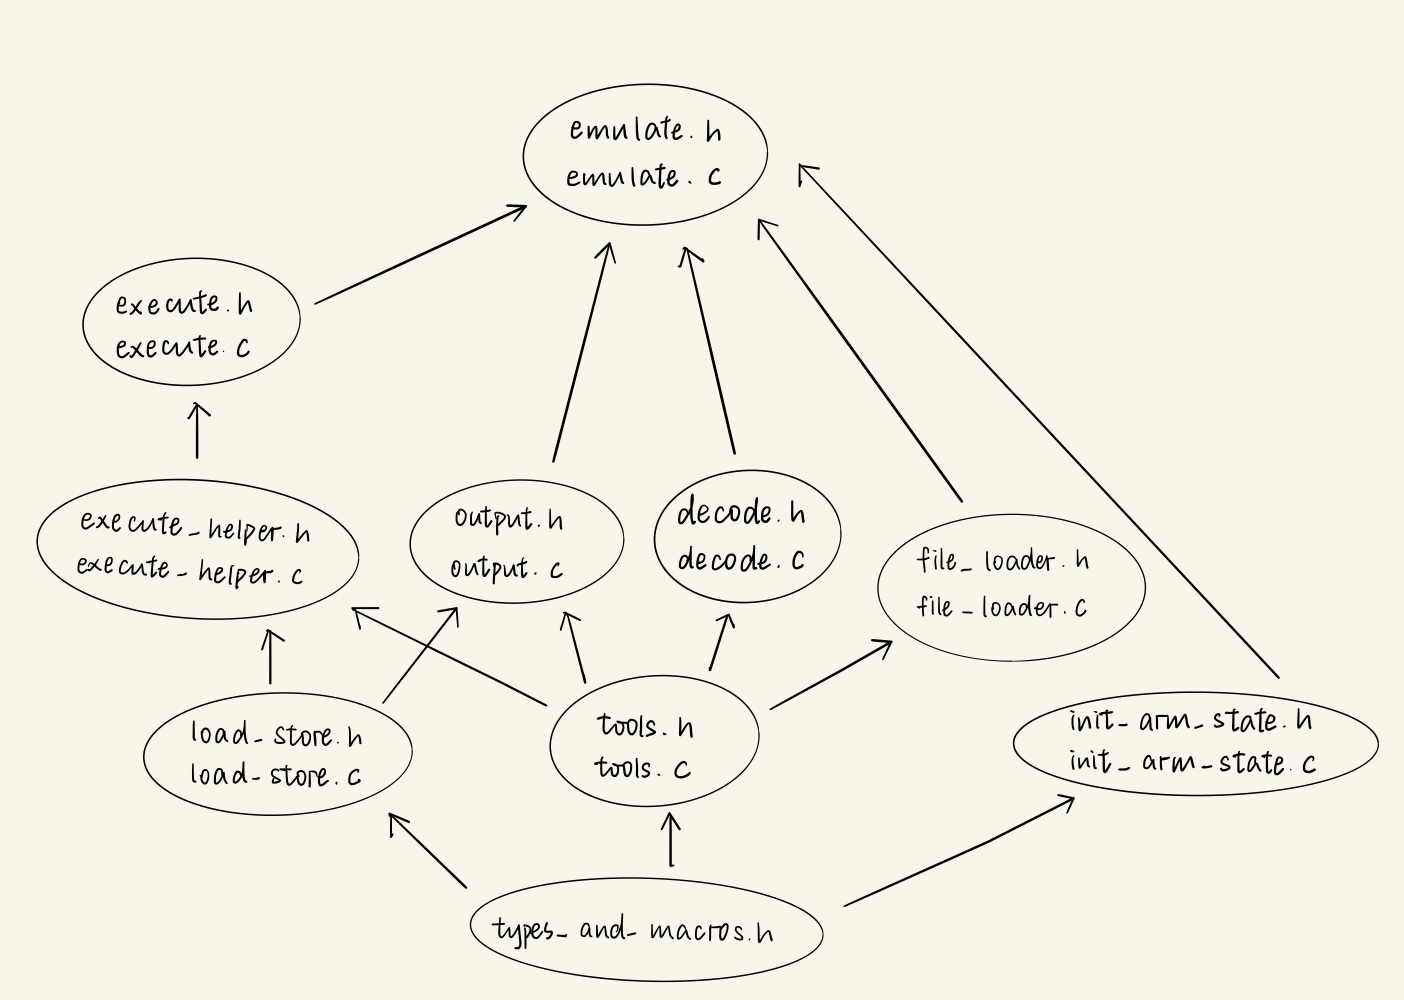 emulate.h
emulate.c
execute.h
execute.c
execute_helper.h
execute_helper.c
output.h
output.c
decode.h
decode.c
file_loader.h
file_loader.c
load_store.h
load_store.c
tools.h
tools.c
init_arm_state.h
init_arm_state.c
types_and_macros.h